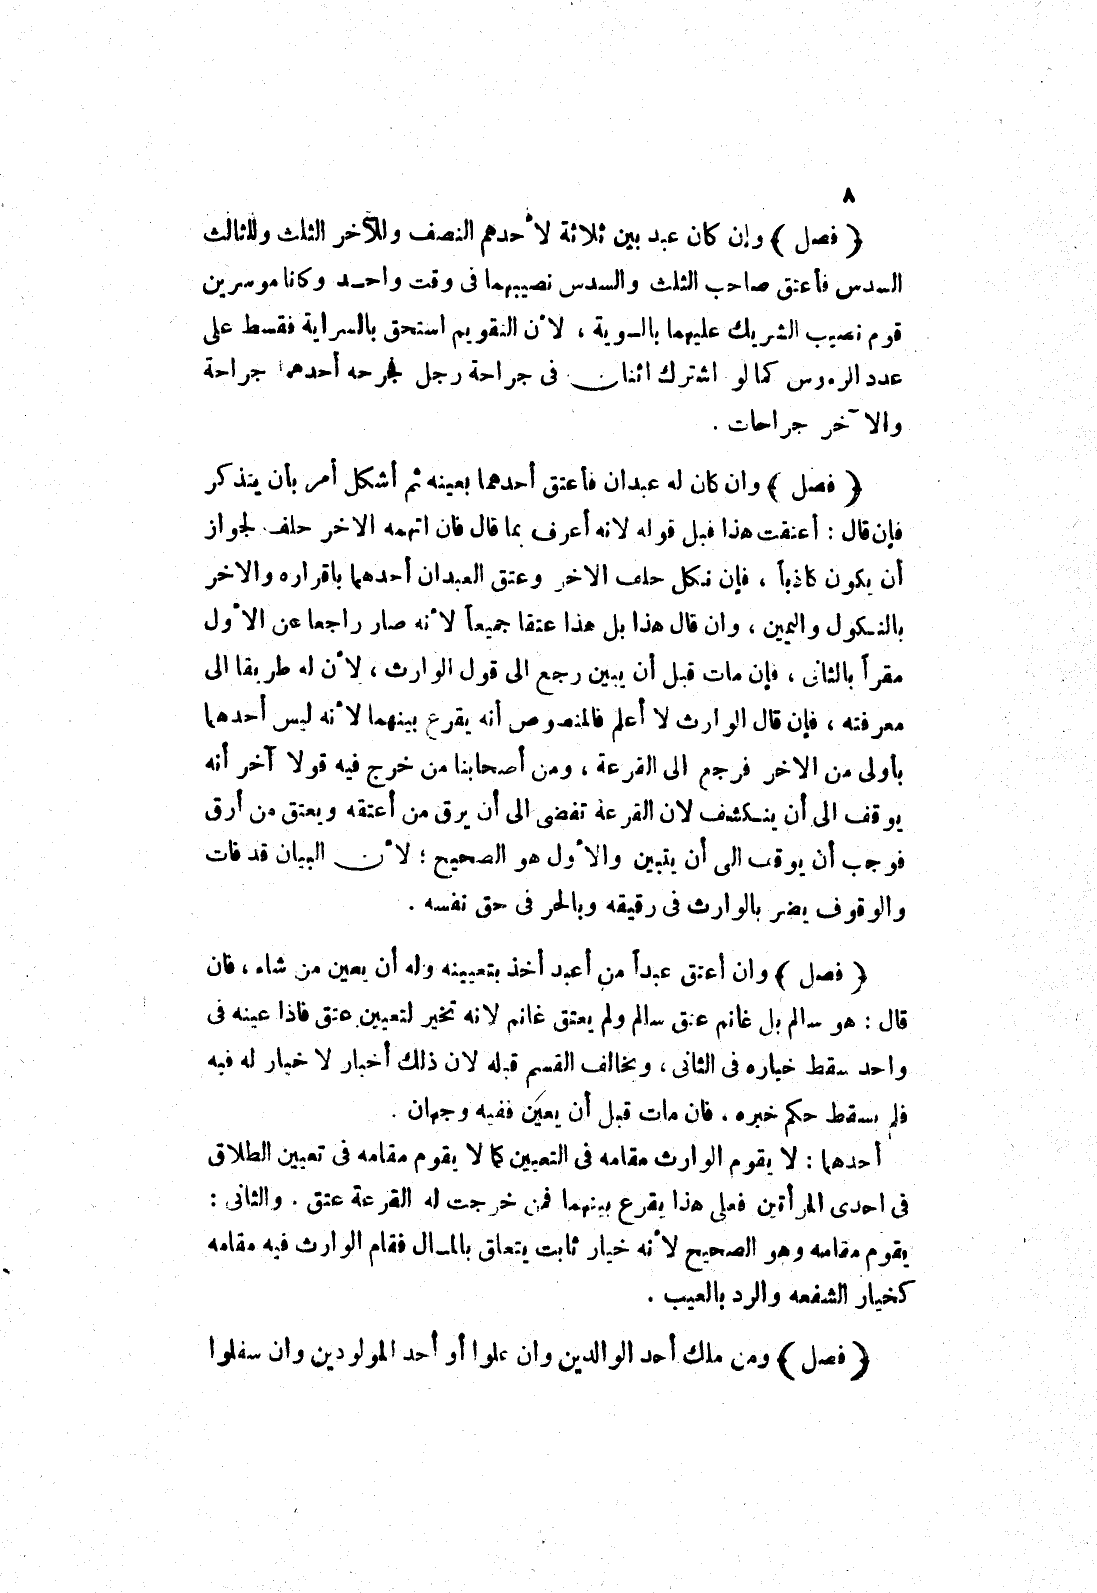 ٨
﴿ فصل ﴾ وإن كان عبد بين ثلاثة لأحدهم النصف وللآخر الثلث وللثالث
السدس فأعتق صاحب الثلث والسدس نصيبهما فى وقت واحد وكانا موسرين
قوم نصيب الشريك عليهما بالسوية ، لأن التقويم استحق بالسراية فقسط على
عدد الرءوس كما لو اشترك اثنان فى جراحة رجل فجرحه أحدهما جراحة
والآخر جراحات .
﴿ فصل ﴾ وان كان له عبدان فأعتق أحدهما بعينه ثم أشكل أمر بأن يتذكر
فإن قال : أعتقت هذا قبل قوله لانه أعرف بما قال فان اتهمه الاخر حلف لجواز
أن يكون كاذباً ، فإن نكل حلف الاخر وعتق العبدان أحدهما باقراره والاخر
بالنكول واليمين ، وان قال هذا بل هذا عتقا جميعاً لأنه صار راجعا عن الأول
مقراً بالثانى ، فإن مات قبل أن يبين رجع الى قول الوارث ، لأن له طريقا الى
معرفته ، فإن قال الوارث لا أعلم فالمنصوص أنه يقرع بينهما لأنه ليس أحدهما
بأولى من الاخر فرجع الى القرعة ، ومن أصحابنا من خرج فيه قولا آخر أنه
يوقف الى أن ينكشف لان القرعة تفضى الى أن يرق من أعتقه ويعتق من أرق
فوجب أن يوقف الى أن يتبين والأول هو الصحيح ؛ لأن البيان قد فات
والوقوف يضر بالوارث فى رقيقه وبالحر فى حق نفسه .
﴿ فصل ﴾ وان أعتق عبداً من أعبد أخذ بتعيينه وله أن يعين من شاء ، فان
قال : هو سالم بل غانم عتق سالم ولم يعتق غانم لانه تخير لتعيين عتق فاذا عينه فى
واحد سقط خياره فى الثانى ، ويخالف القسم قبله لان ذلك أخبار لا خيار له فيه
فلم يسقط حكم خبره ، فان مات قبل أن يعين ففيه وجهان .
أحدهما : لا يقوم الوارث مقامه فى التعيين كما لا يقوم مقامه فى تعيين الطلاق
فى احدى المرأتين فعلى هذا يقرع بينهما فمن خرجت له القرعة عتق . والثانى :
يقوم مقامه وهو الصحيح لأنه خيار ثابت يتعلق بالمال فقام الوارث فيه مقامه
كخيار الشفعه والرد بالعيب .
﴿ فصل ﴾ ومن ملك أحد الوالدين وان علوا أو أحد المولودين وان سفلوا